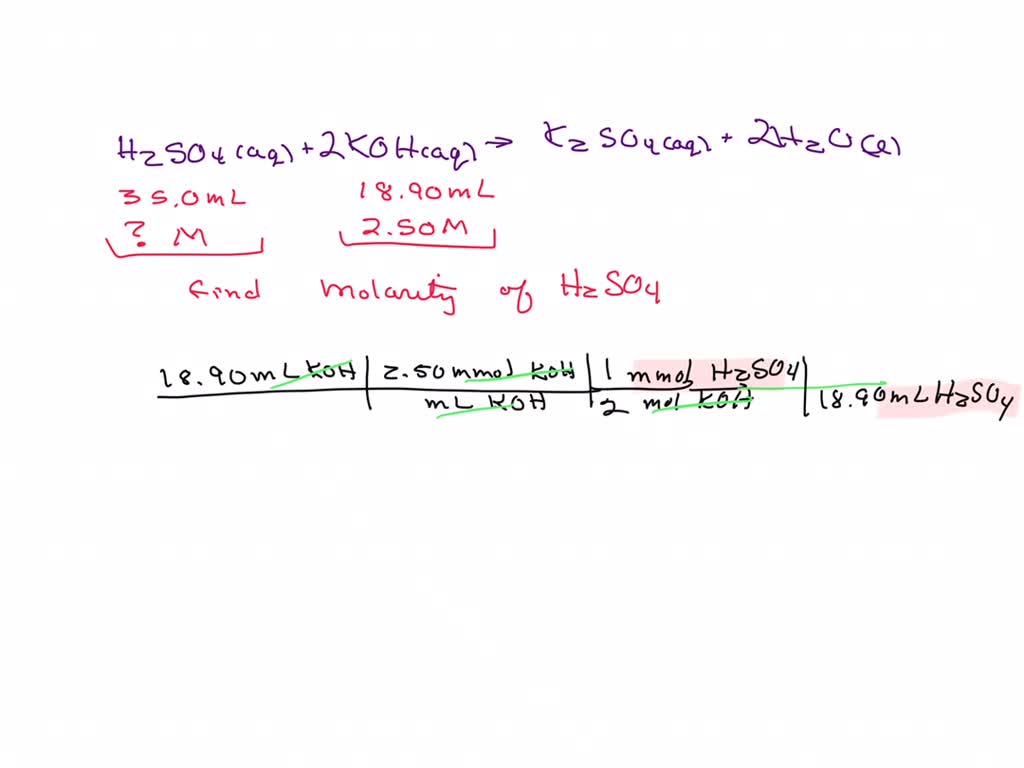 H2SO4(aq) + 2KOH(aq) → K2SO4(aq) + 2H2O(l)
35.0mL 18.90mL
? M 2.50M
find molarity of H2SO4
18.90mL KOH | 2.50mmol KOH | 1 mmol H2SO4 |
mL KOH | 2 mol KOH | 18.90mL H2SO4